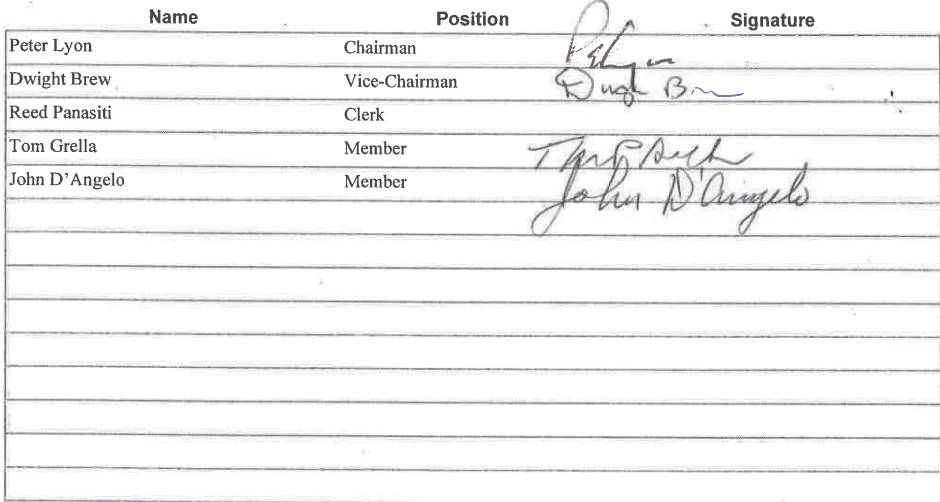 Name Position Signature
Peter Lyon Chairman
Dwight Brew Vice-Chairman Dwight B
Reed Panasiti Clerk
Tom Grella Member
John D'Angelo Member John D'Angelo